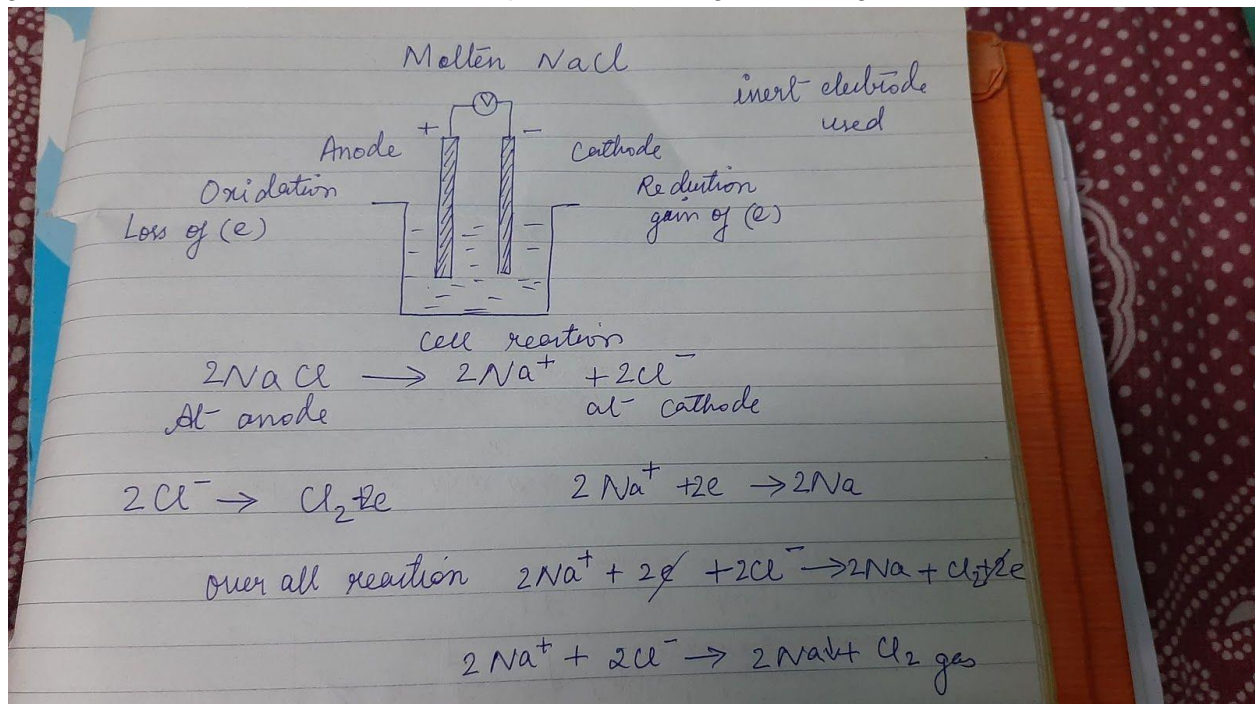 Molten NaCl
inert electrode
used
V
+ −
Anode Cathode
Oxidation Reduction
Loss of (e) gain of (e)
Cell reaction
2NaCl → 2Na⁺ + 2Cl⁻
At anode at cathode
2Cl⁻ → Cl₂+2e 2Na⁺ +2e → 2Na
over all reaction 2Na⁺ + 2e + 2Cl⁻ → 2Na + Cl₂+2e
2Na⁺ + 2Cl⁻ → 2Na↓+ Cl₂ gas